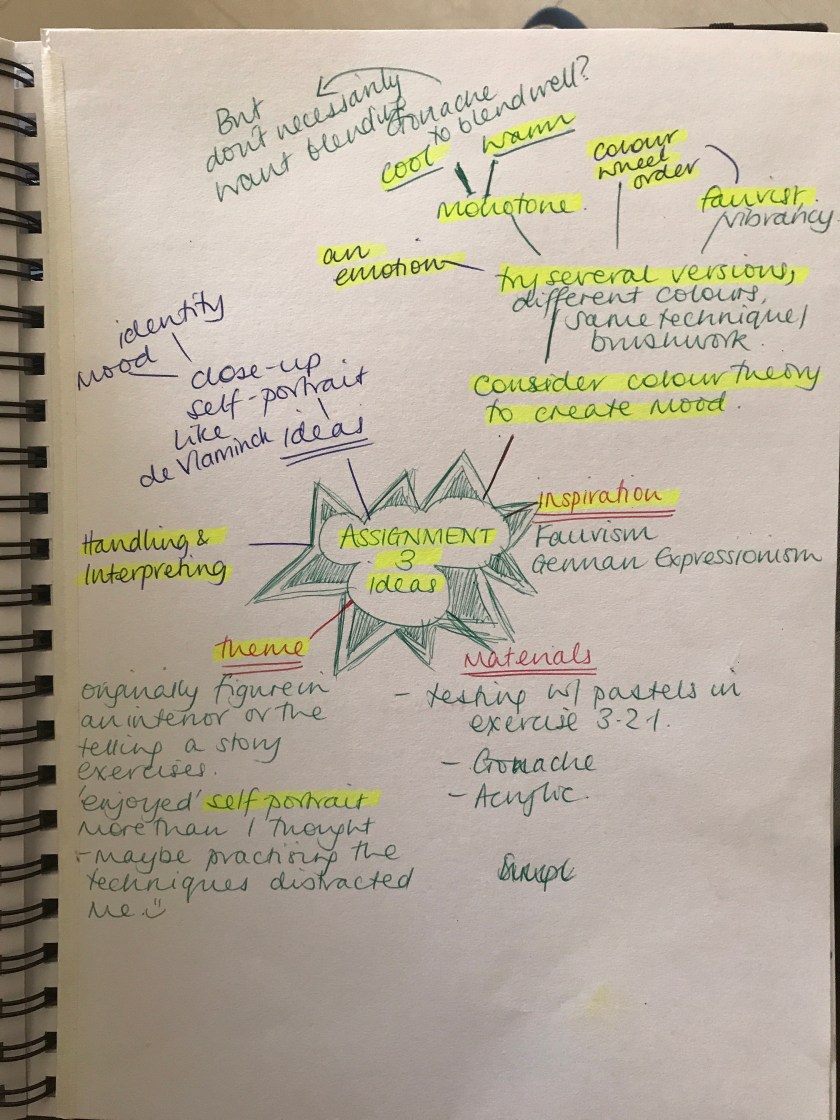 But
don't necessarily
want blending
Gouache
to blend well?
cool
warm
Monotone
colour
wheel
order
fauvist
vibrancy
an
emotion
try several versions,
different colours,
same technique/
brushwork.
consider colour theory
to create mood.
identity
Mood
close-up
self-portrait
like
de Vlaminck
ideas
Handling &
Interpreting
ASSIGNMENT
3
ideas
Inspiration
Fauvism
German Expressionism
theme
originally figure in
an interior or the
telling a story
exercises.
'enjoyed' self portrait
more than I thought
- maybe practising the
techniques distracted
me.
Materials
- testing w/ pastels in
exercise 3.2.1.
- Gouache
- Acrylic.